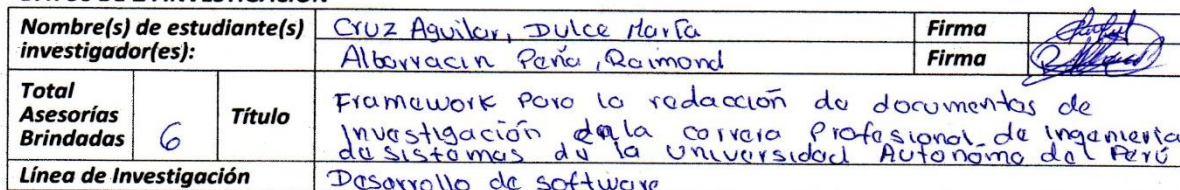 Nombre(s) de estudiante(s) investigador(es):
Cruz Aguilar, Dulce María
Firma
Albarracin Peña, Raimond
Firma
Total Asesorías Brindadas
6
Título
Framework para la redacción de documentos de
investigación de la carrera Profesional de ingeniería
de sistemas de la Universidad Autónoma del Perú
Línea de Investigación
Desarrollo de software